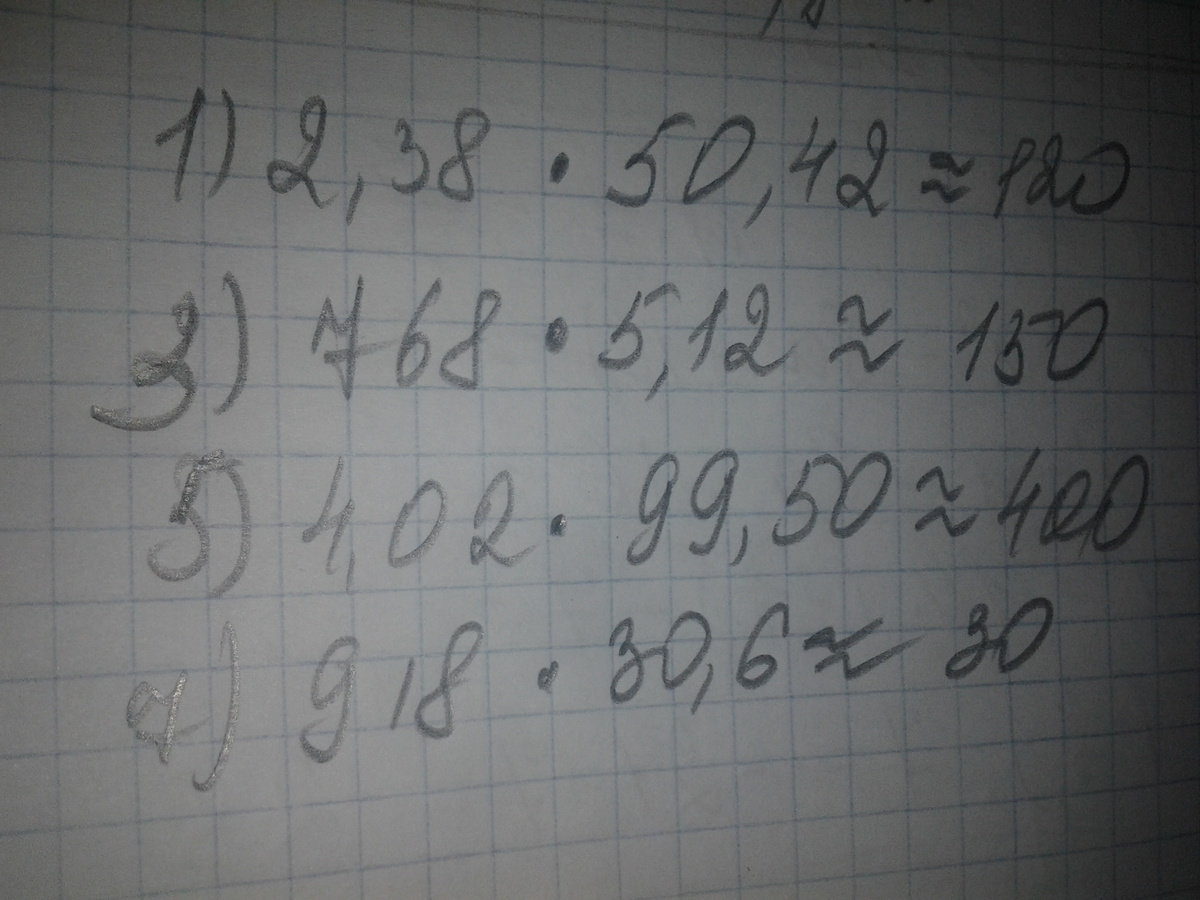 1) 2,38 · 50,42 ≈ 120
3) 768 · 5,12 ≈ 150
5) 4,02 · 99,50 ≈ 400
7) 918 · 30,6 ≈ 30